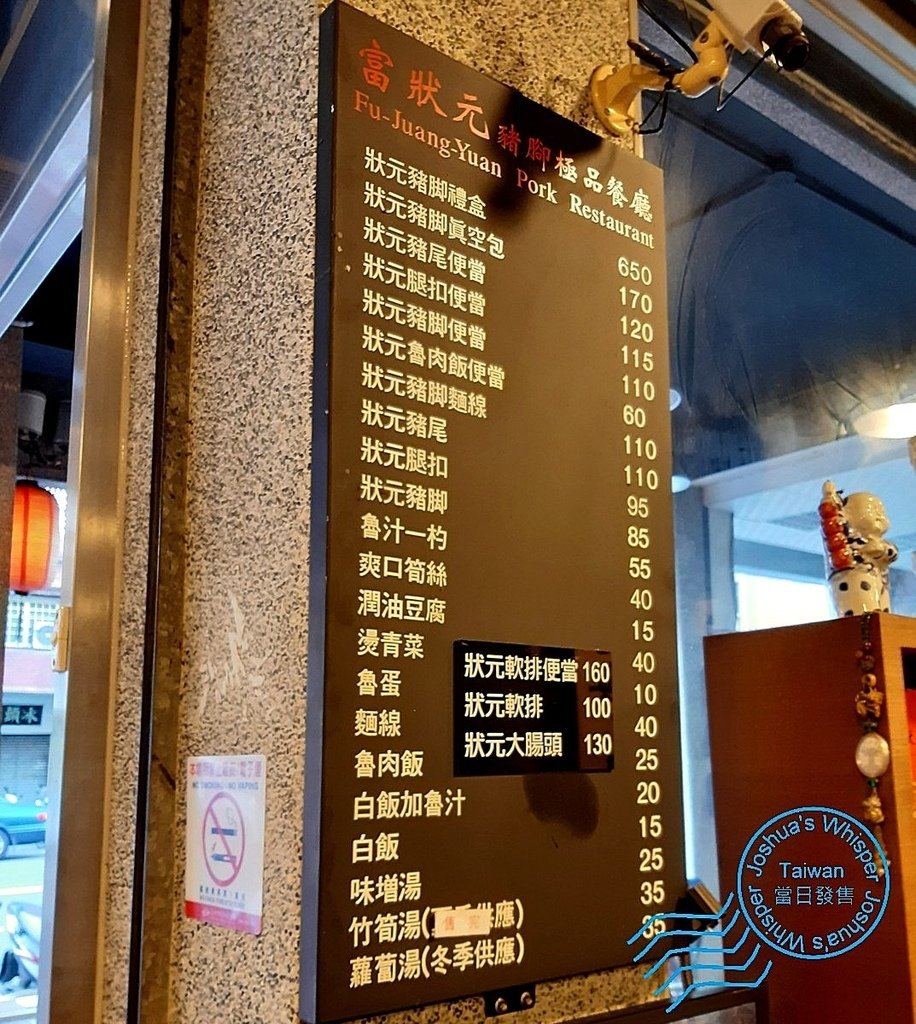 富狀元豬腳極品餐廳
Fu-Juang-Yuan Pork Restaurant
狀元豬脚禮盒 650
狀元豬脚眞空包 170
狀元豬尾便當 120
狀元腿扣便當 115
狀元豬脚便當 110
狀元魯肉飯便當 60
狀元豬脚麵線 110
狀元豬尾 110
狀元腿扣 95
狀元豬脚 85
魯汁一杓 55
爽口筍絲 40
潤油豆腐 15
燙青菜 40
魯蛋 10
麵線 40
魯肉飯 25
白飯加魯汁 20
白飯 15
味增湯 25
竹筍湯(供應) 35
售完
蘿蔔湯(冬季供應) 35
狀元軟排便當 160
狀元軟排 100
狀元大腸頭 130
NO SMOKING / NO VAPING
Joshua's Whisper
Taiwan
當日發售
Joshua's Whisper